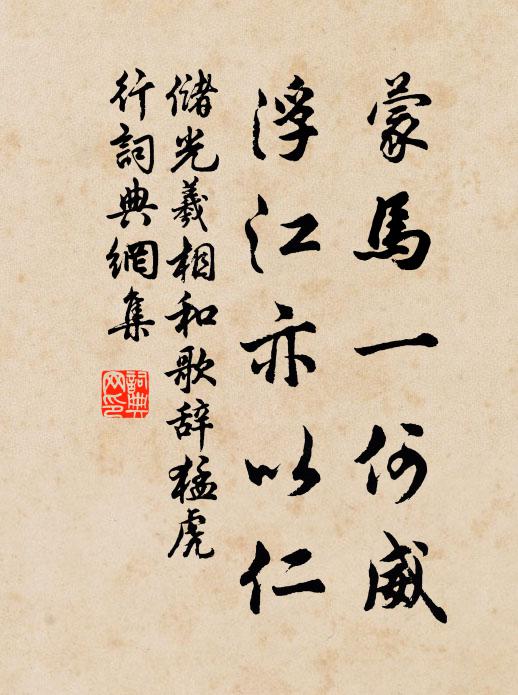 蒙馬一何威
浮江亦以仁
儲光羲相和歌辞猛虎
行詞典網集
詞典
网印